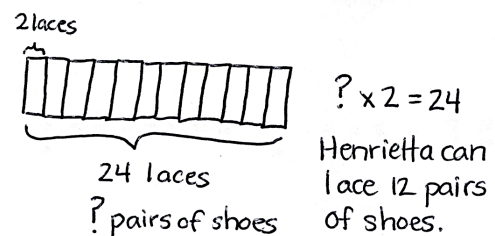 2 laces
24 laces
? pairs of shoes
? x 2 = 24
Henrietta can
lace 12 pairs
of shoes.